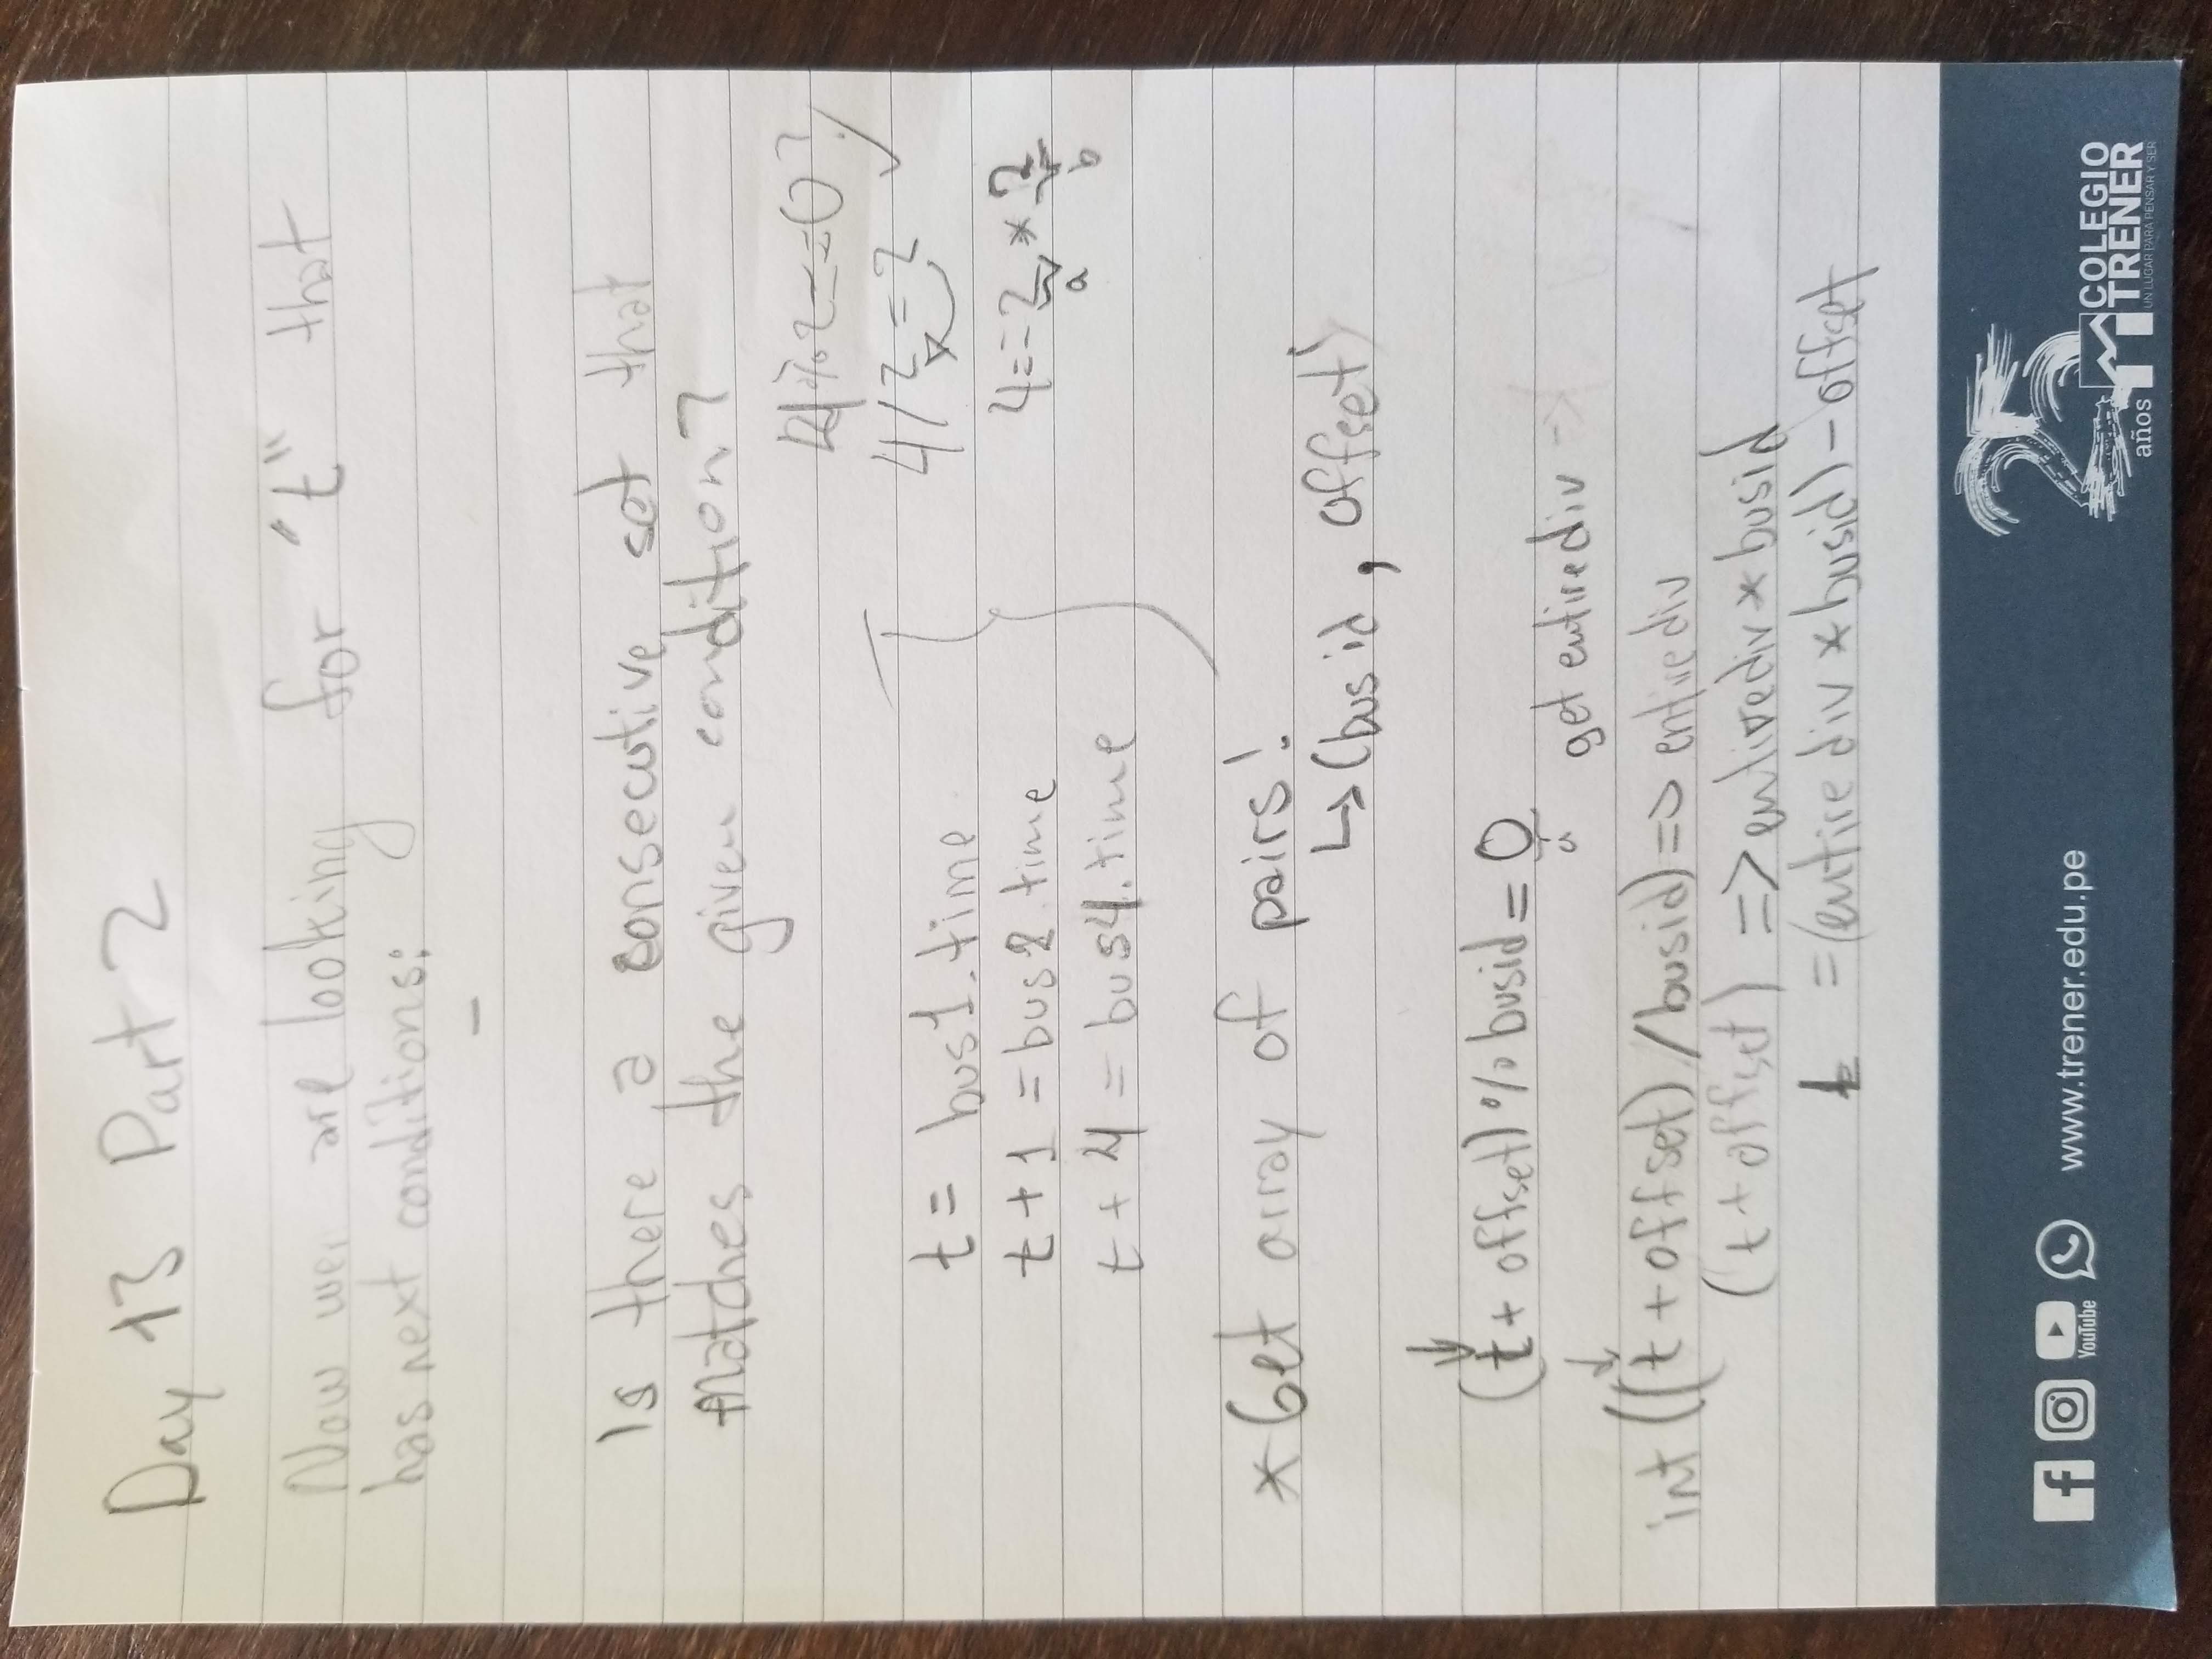 Day 13 Part 2
Now we are looking for "t" that
has next conditions:
-
Is there a consecutive set that
matches the given condition?
4%2==0?
4/2=2
t = bus1.time
t+1 = bus2.time
4==2*2
a b
t+4 = bus4.time
* Get array of pairs!
↳ (bus id, offset)
(t + offset) % busid = 0
a
get entirediv ->
int((t + offset)/busid) => entirediv
(t + offset) => entirediv * busid
t = (entire div * busid) - offset
YouTube
www.trener.edu.pe
25
años
COLEGIO
TRENER
UN LUGAR PARA PENSAR Y SER